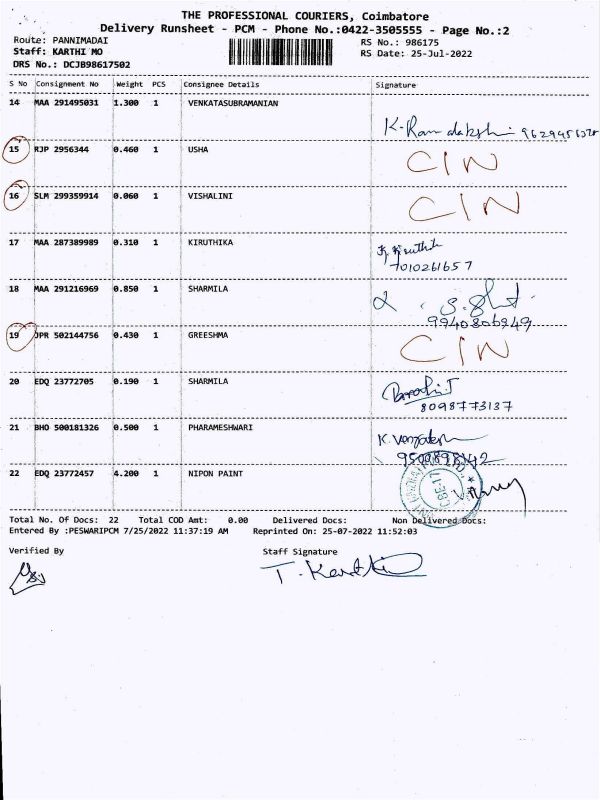 THE PROFESSIONAL COURIERS, Coimbatore
Delivery Runsheet - PCM - Phone No.:0422-3505555 - Page No.:2
Route: PANNIMADAI RS No.: 986175
Staff: KARTHI MO RS Date: 25-Jul-2022
DRS No.: DCJB98617502
S No Consignment No Weight PCS Consignee Details Signature
14 MAA 291495031 1.300 1 VENKATASUBRAMANIAN
15 RJP 2956344 0.460 1 USHA CIN
16 SLM 299359914 0.060 1 VISHALINI CIN
17 MAA 287389989 0.310 1 KIRUTHIKA K. Kiruthik
7010261657
18 MAA 291216969 0.850 1 SHARMILA
9940806949
19 JPR 502144756 0.430 1 GREESHMA CIN
20 EDQ 23772705 0.190 1 SHARMILA
8098773137
21 BHO 500181326 0.500 1 PHARAMESHWARI K. Venkatesh
22 EDQ 23772457 4.200 1 NIPON PAINT
Total No. Of Docs: 22 Total COD Amt: 0.00 Delivered Docs: Non Delivered Docs:
Entered By :PESWARIPCM 7/25/2022 11:37:19 AM Reprinted On: 25-07-2022 11:52:03
Verified By Staff Signature
T. Karthi